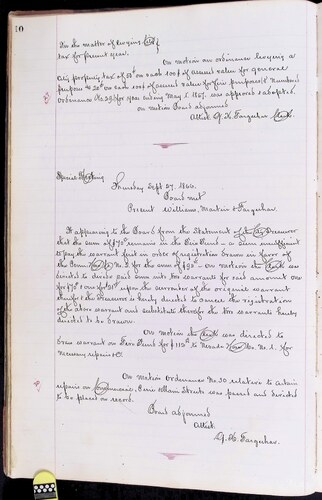 10
In the matter of levying City
tax for present year.
On motion an ordinance levying a
City property tax of on each 100$ of assessed value for general
purposes & on each 100$ of assessed value for fire purposes (& numbered
Ordinance No 29) for year ending May 1. 1867. was approved & adopted.
on motion Board adjourned
Attest G. K. Farquhar Clerk.
Special Meeting
Thursday Sept 27, 1866.
Board met
Present Williams, Martin & Farquhar.
It appearing to the Board from the Statement of the City Treasurer
that the sum of remains in the Fire Fund – a sum insufficient
to pay the warrant first in order of registration drawn in favor of
the No 2 for the sum of On motion the Clerk was
directed to divide said sum into two warrants for said amount one
for & one for upon the surrender of the original warrant
the Treasurer is hereby directed to cancel the registration
of the above warrant and substitute therefor the two warrants hereby
directed to be drawn.
On motion the Clerk was directed to
draw warrant on Fire Fund for to Nevada Hose Co. No. 1. for
necessary repairs &c.
On motion Ordinance No 30 relative to certain
repairs on Commercial, Pine & Main Streets was passed and directed
to be placed on record.
Board adjourned
Attest.
G. K. Farquhar.